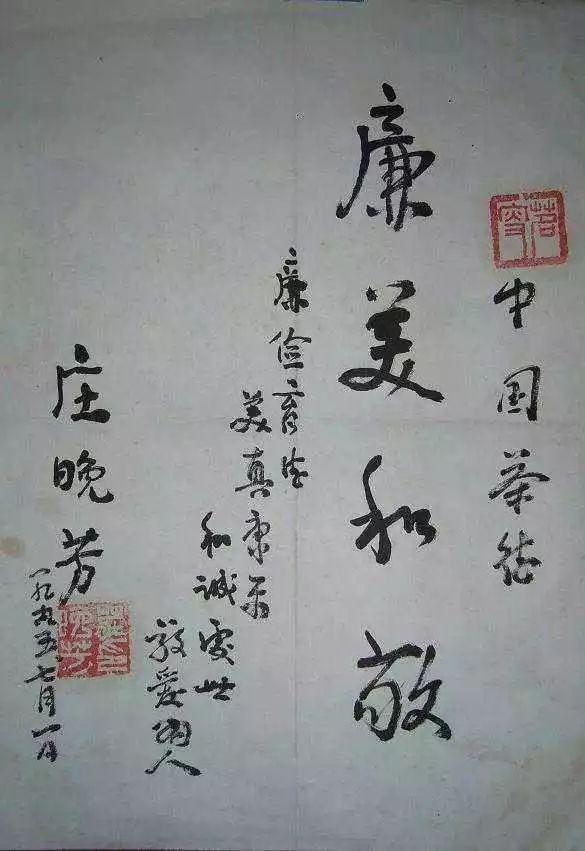 茗叟
中国茶德
廉美和敬
廉俭育德
美真康乐
和诚处世
敬爱为人
庄晚芳
一九九五七月一日